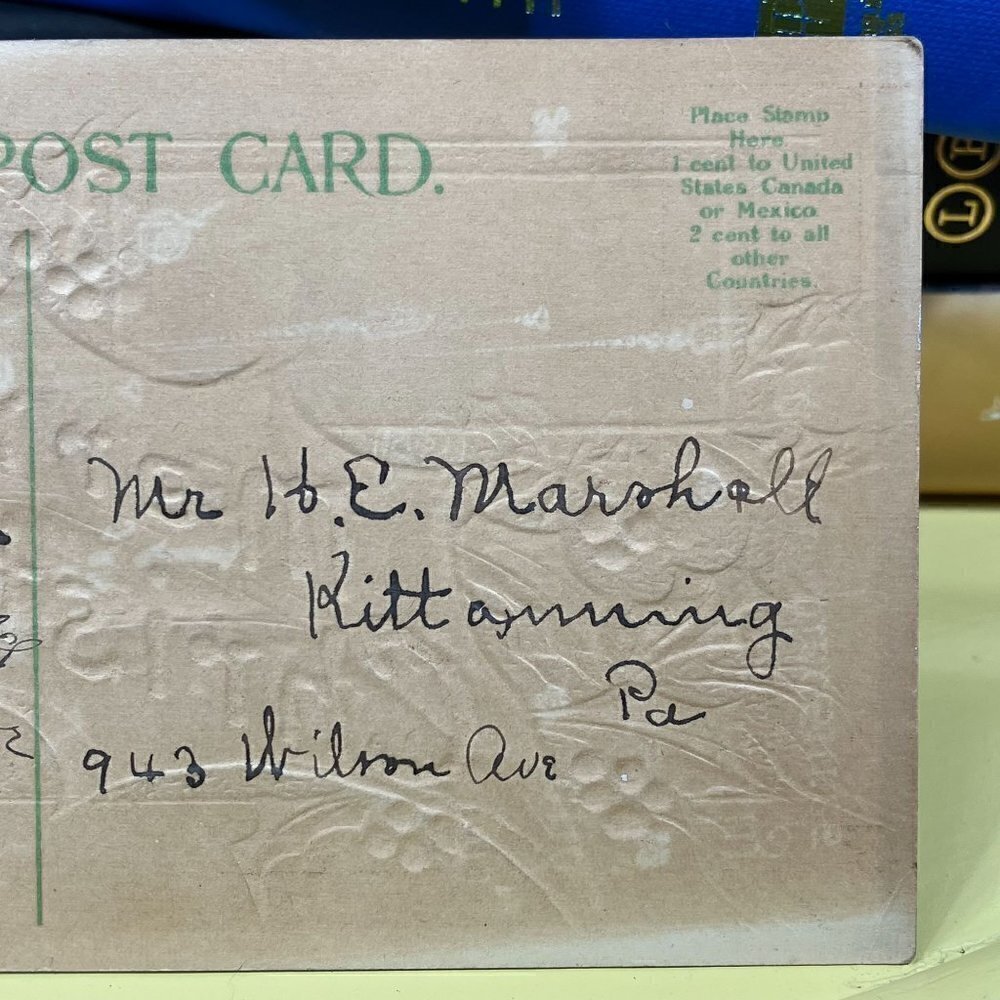 POST CARD.
Place Stamp
Here
1 cent to United
States Canada
or Mexico
2 cent to all
other
Countries.
Mr H.E. Marshall
Kittanning
Pa
943 Wilson Ave